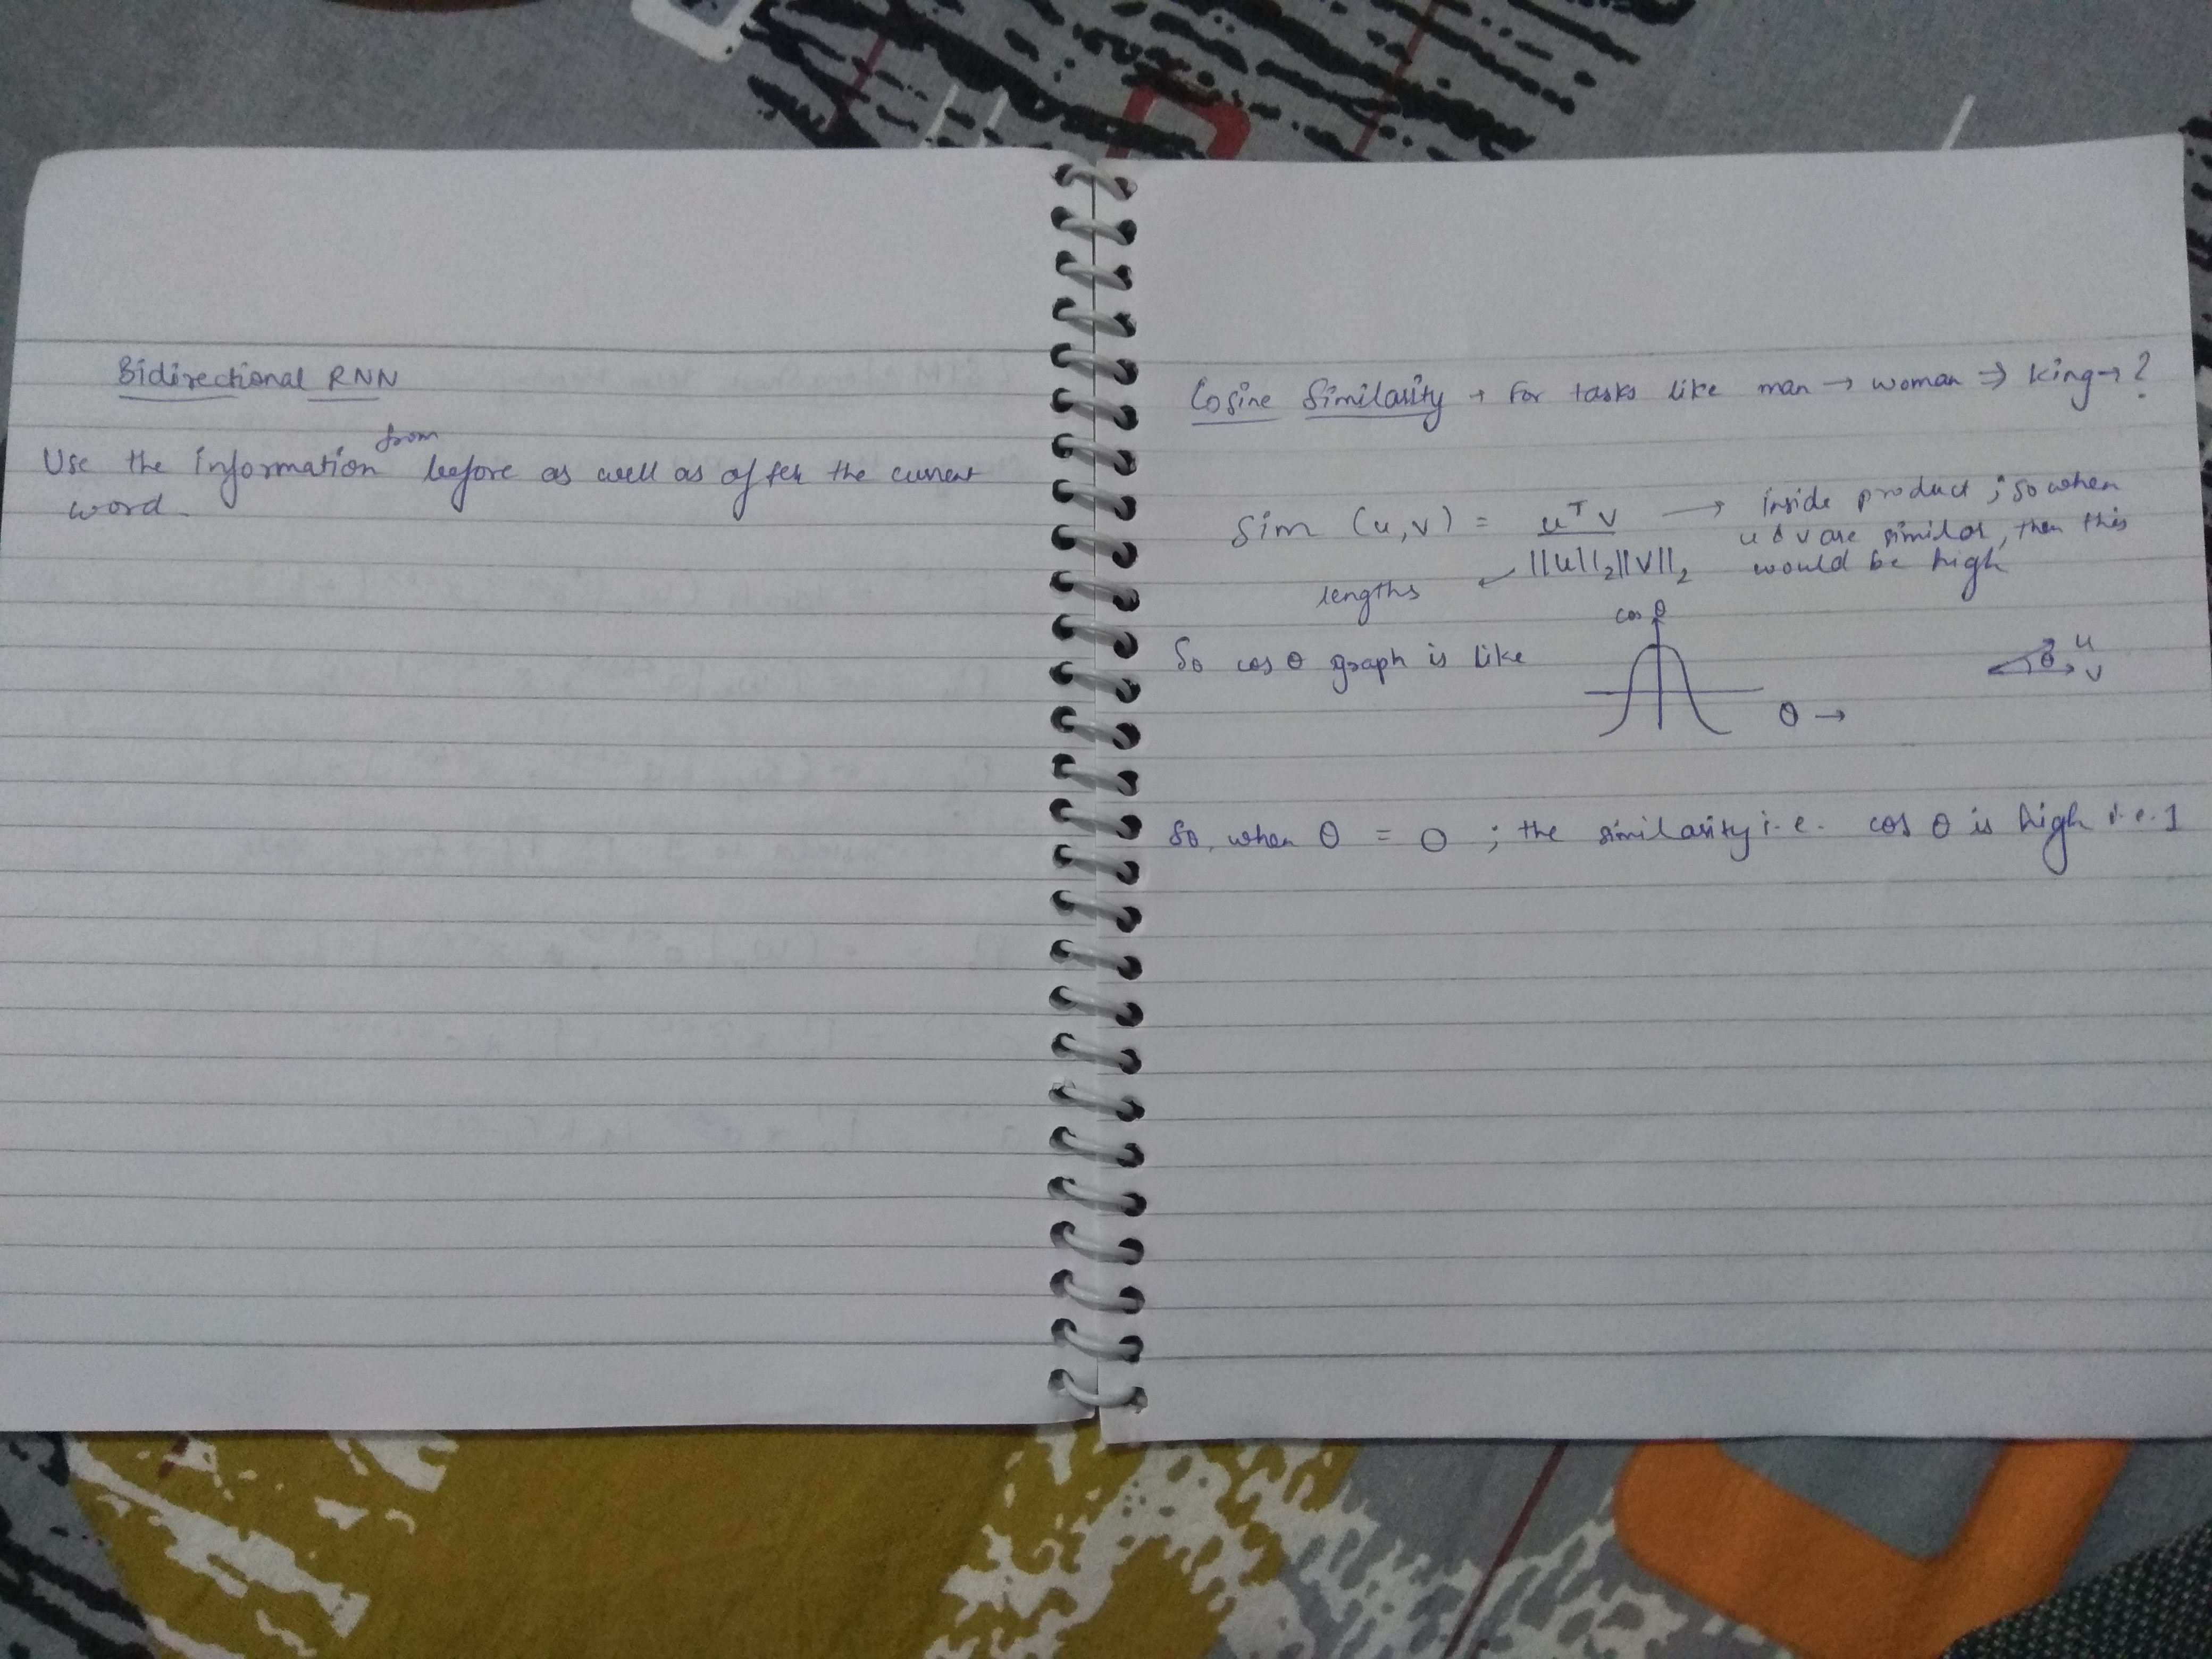 Bidirectional RNN
Use the information from before as well as after the current
word.
Cosine Similarity → For tasks like man → woman ⇒ King → ?
Sim (u,v) = u^T v / ||u||₂||v||₂ → inside product ; so when
u & v are similar, then this
would be high
lengths
cos θ
So cos θ graph is like
θ →
u
θ
v
So, when θ = 0 ; the similarity i.e. cos θ is high i.e. 1